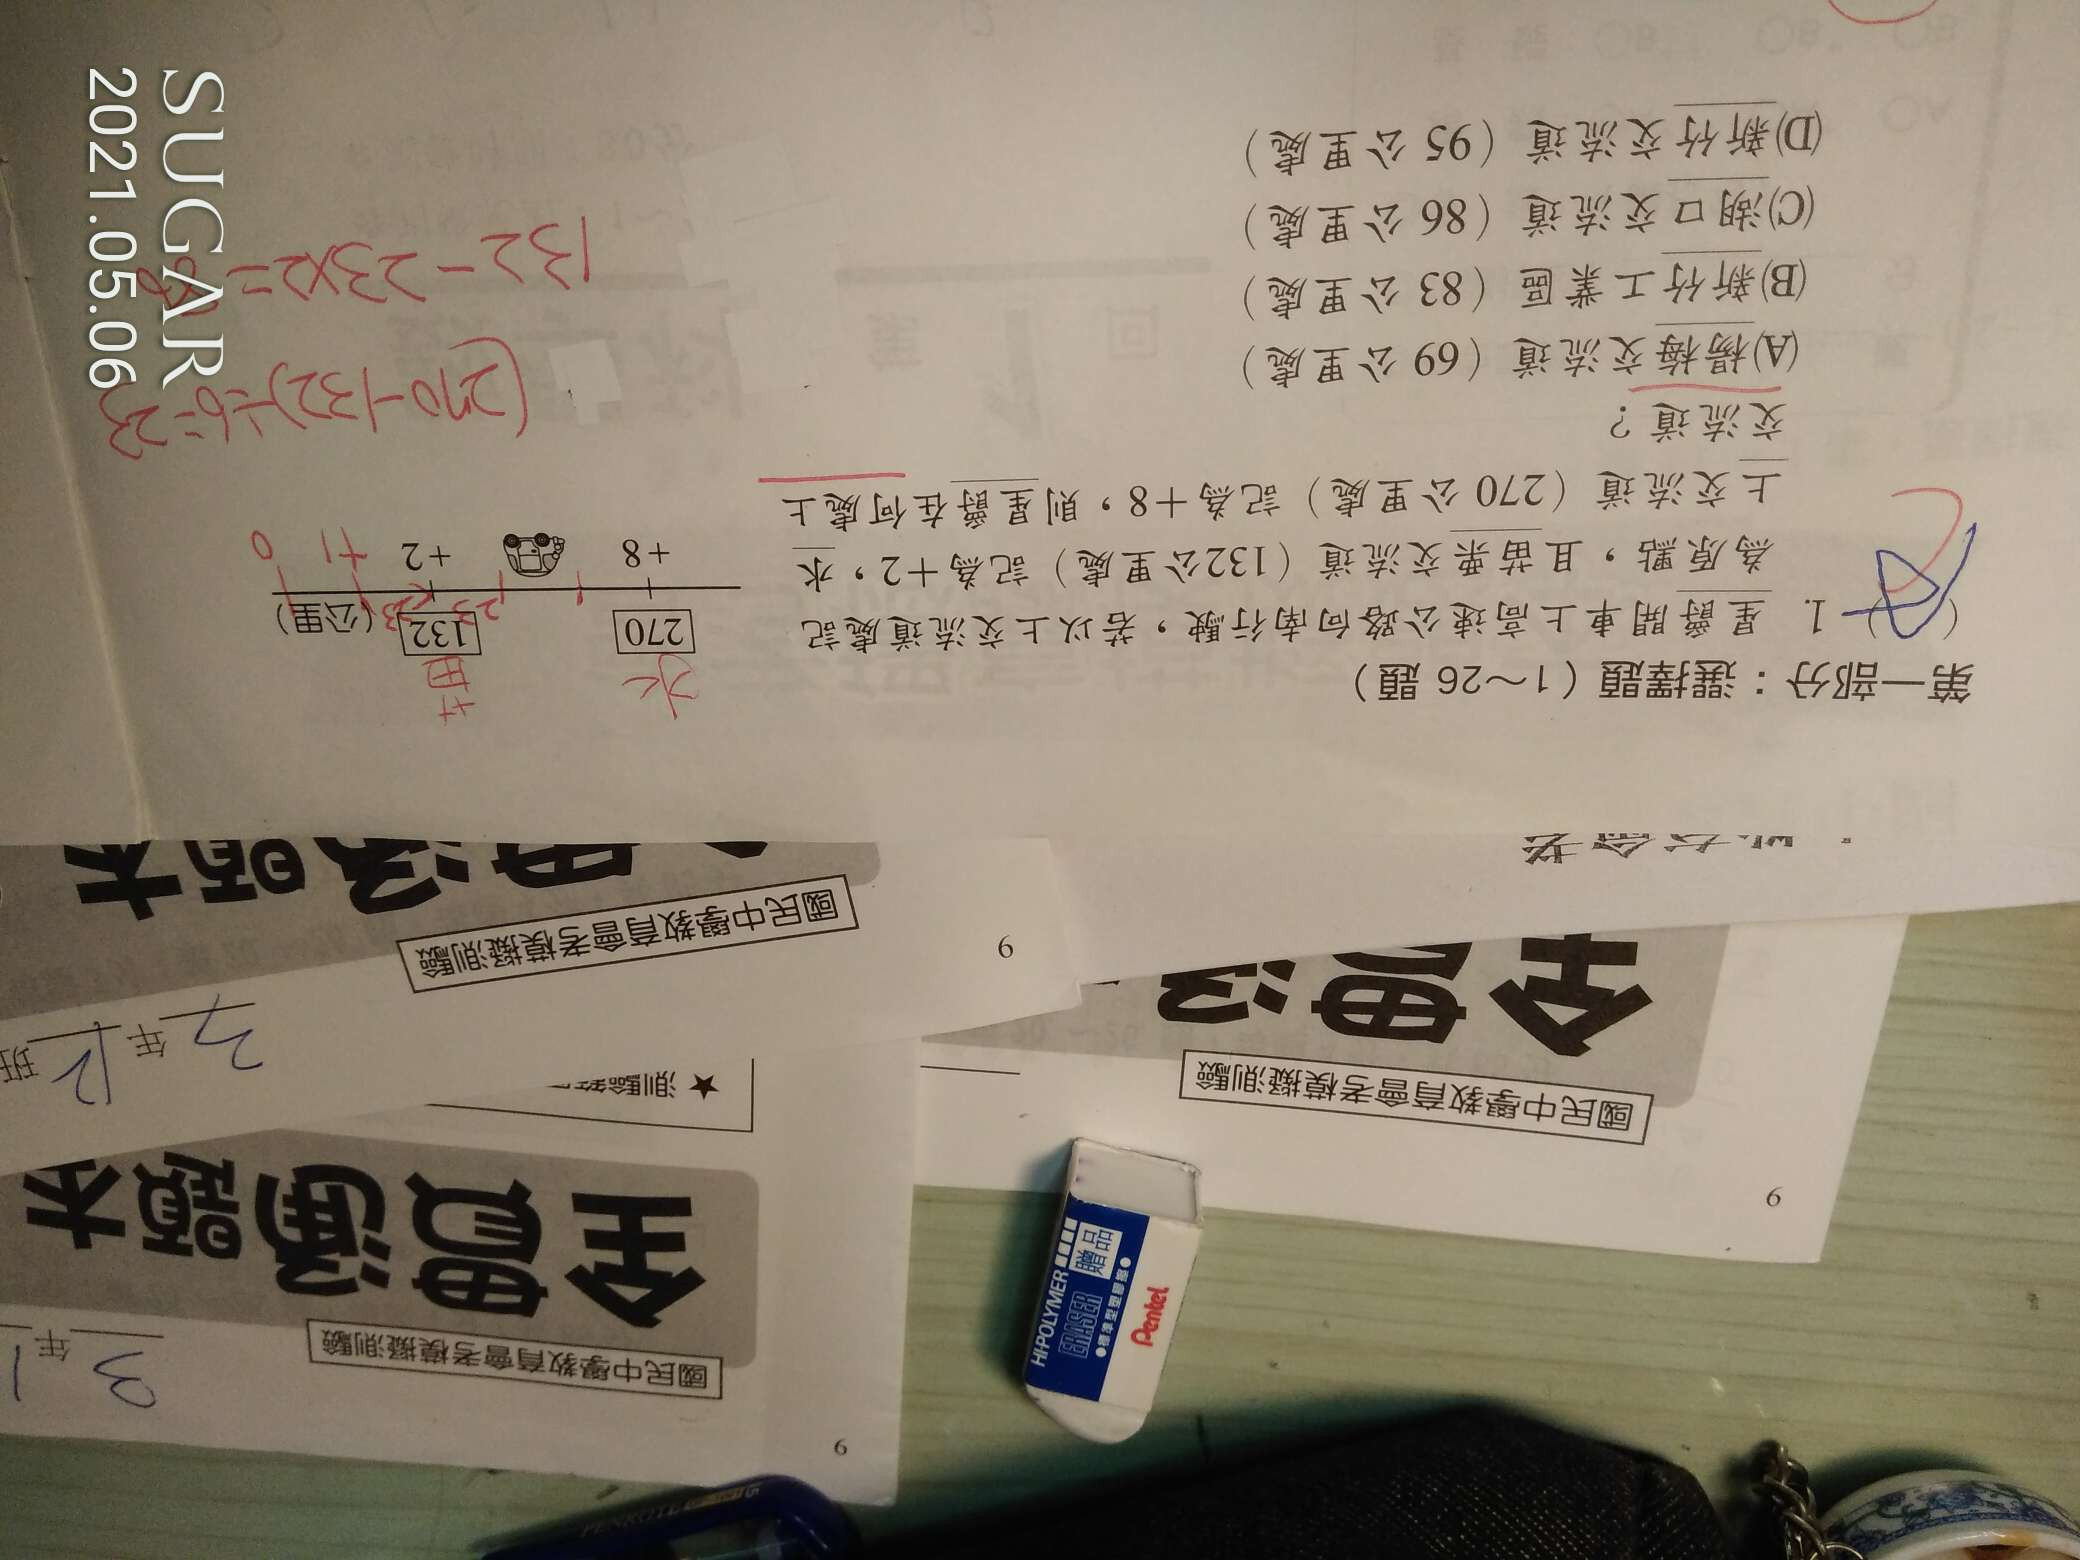 第一部分：選擇題（1～26 題）
（　）1. 星爵開車上高速公路向南行駛，若以上交流道處記
為原點，且苗栗交流道（132公里處）記為＋2，水
上交流道（270 公里處）記為＋8，則星爵在何處上
交流道？
(A)楊梅交流道（69 公里處）
(B)新竹工業區（83 公里處）
(C)湖口交流道（86 公里處）
(D)新竹交流道（95 公里處）
水 苗
270 132 （公里）
23 23
+8 +2 +1 0
(270-132)÷6=23
132-23×2=
國民中學教育會考模擬測驗
6
年 12 班
國民中學教育會考模擬測驗
全
6
★ 測驗
國民中學教育會考模擬測驗
全真題本
3 年 1
6
Pentel
HI-POLYMER
ERASER
贈品
SUGAR
2021.05.06